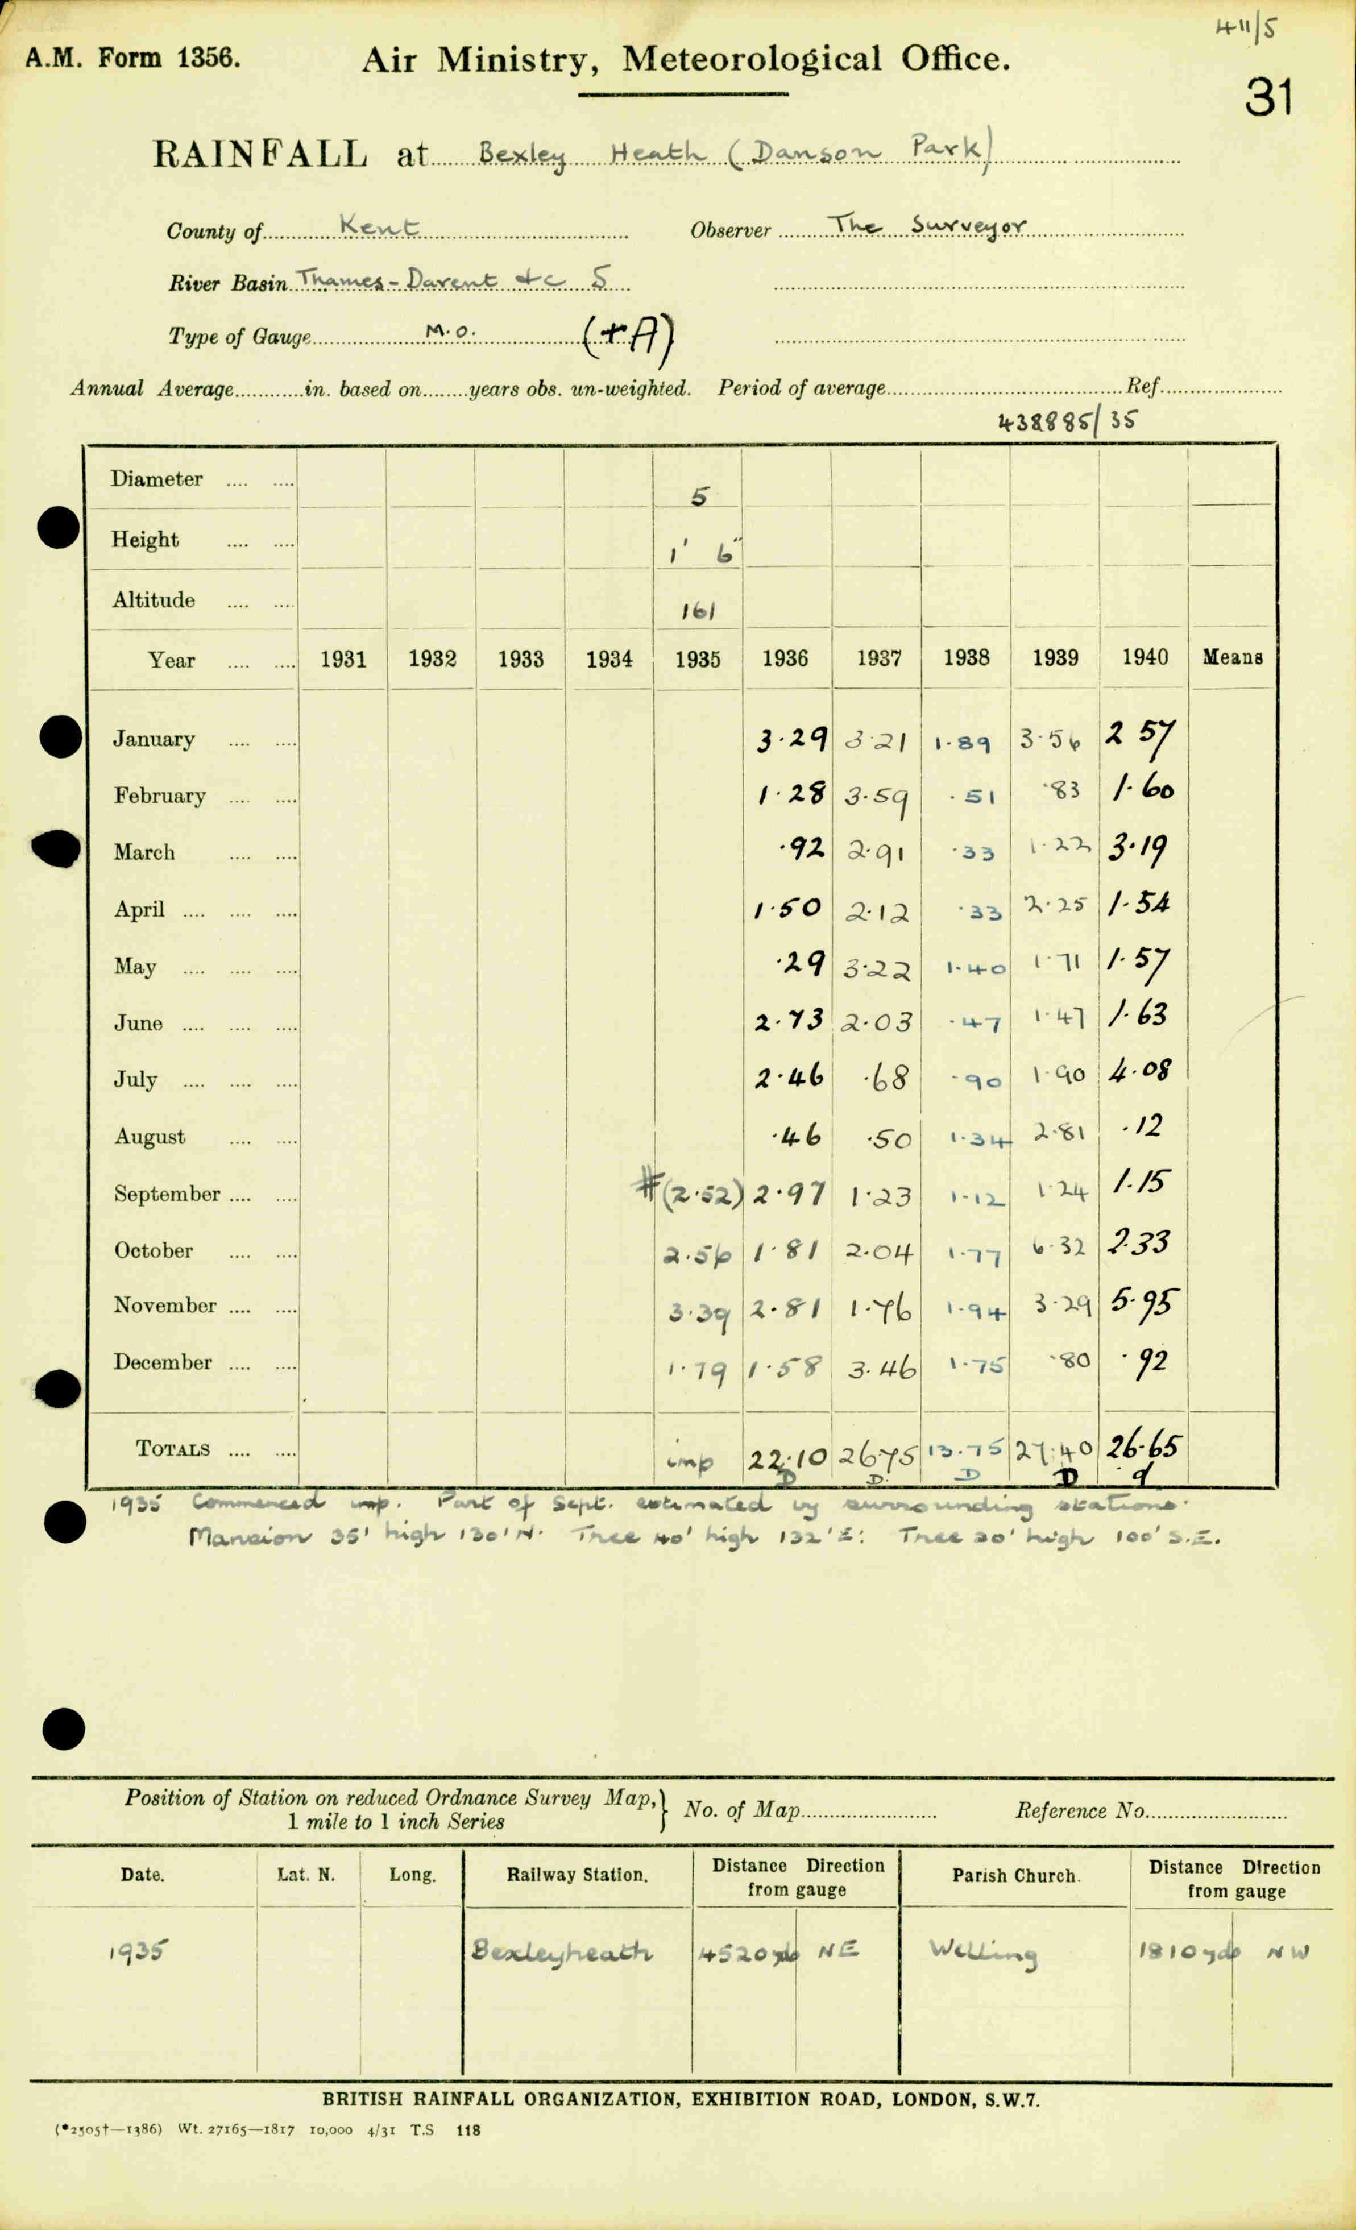 411/5
A.M. Form 1356. Air Ministry, Meteorological Office.
31
RAINFALL at Bexley Heath (Danson Park)
County of Kent Observer The Surveyor
River Basin Thames - Darent &c 5
Type of Gauge M.O. (+A)
Annual Average............in. based on........years obs. un-weighted. Period of average.................... Ref....................
438885/35
Diameter .... .... 5
Height .... .... 1' 6"
Altitude .... .... 161
Year .... .... 1931 1932 1933 1934 1935 1936 1937 1938 1939 1940 Means
January .... .... 3.29 3.21 1.89 3.56 2 57
February .... .... 1.28 3.59 .51 .83 1.60
March .... .... .92 2.91 .33 1.22 3.19
April .... .... .... 1.50 2.12 .33 2.25 1.54
May .... .... .... .29 3.22 1.40 1.71 1.57
June .... .... .... 2.73 2.03 .47 1.47 1.63
July .... .... .... 2.46 .68 .90 1.90 4.08
August .... .... .46 .50 1.34 2.81 .12
September .... .... #(2.52) 2.97 1.23 1.12 1.24 1.15
October .... .... 2.56 1.81 2.04 1.77 6.32 2.33
November .... .... 3.39 2.81 1.76 1.94 3.29 5.95
December .... .... 1.79 1.58 3.46 1.75 .80 .92
TOTALS .... .... imp 22.10 26.75 13.75 27.40 26.65
D D. D D d
1935 Commenced imp. Part of Sept. estimated by surrounding stations.
Mansion 35' high 130' N. Tree 40' high 132' E: Tree 30' high 100' S.E.
Position of Station on reduced Ordnance Survey Map,} No. of Map........................ Reference No.........................
1 mile to 1 inch Series
Date. Lat. N. Long. Railway Station. Distance Direction from gauge Parish Church. Distance Direction from gauge
1935 Bexleyheath 4520 yds NE Welling 1810 yds NW
BRITISH RAINFALL ORGANIZATION, EXHIBITION ROAD, LONDON, S.W.7.
(*2505†—1386) Wt. 27165—1817 10,000 4/31 T.S 118